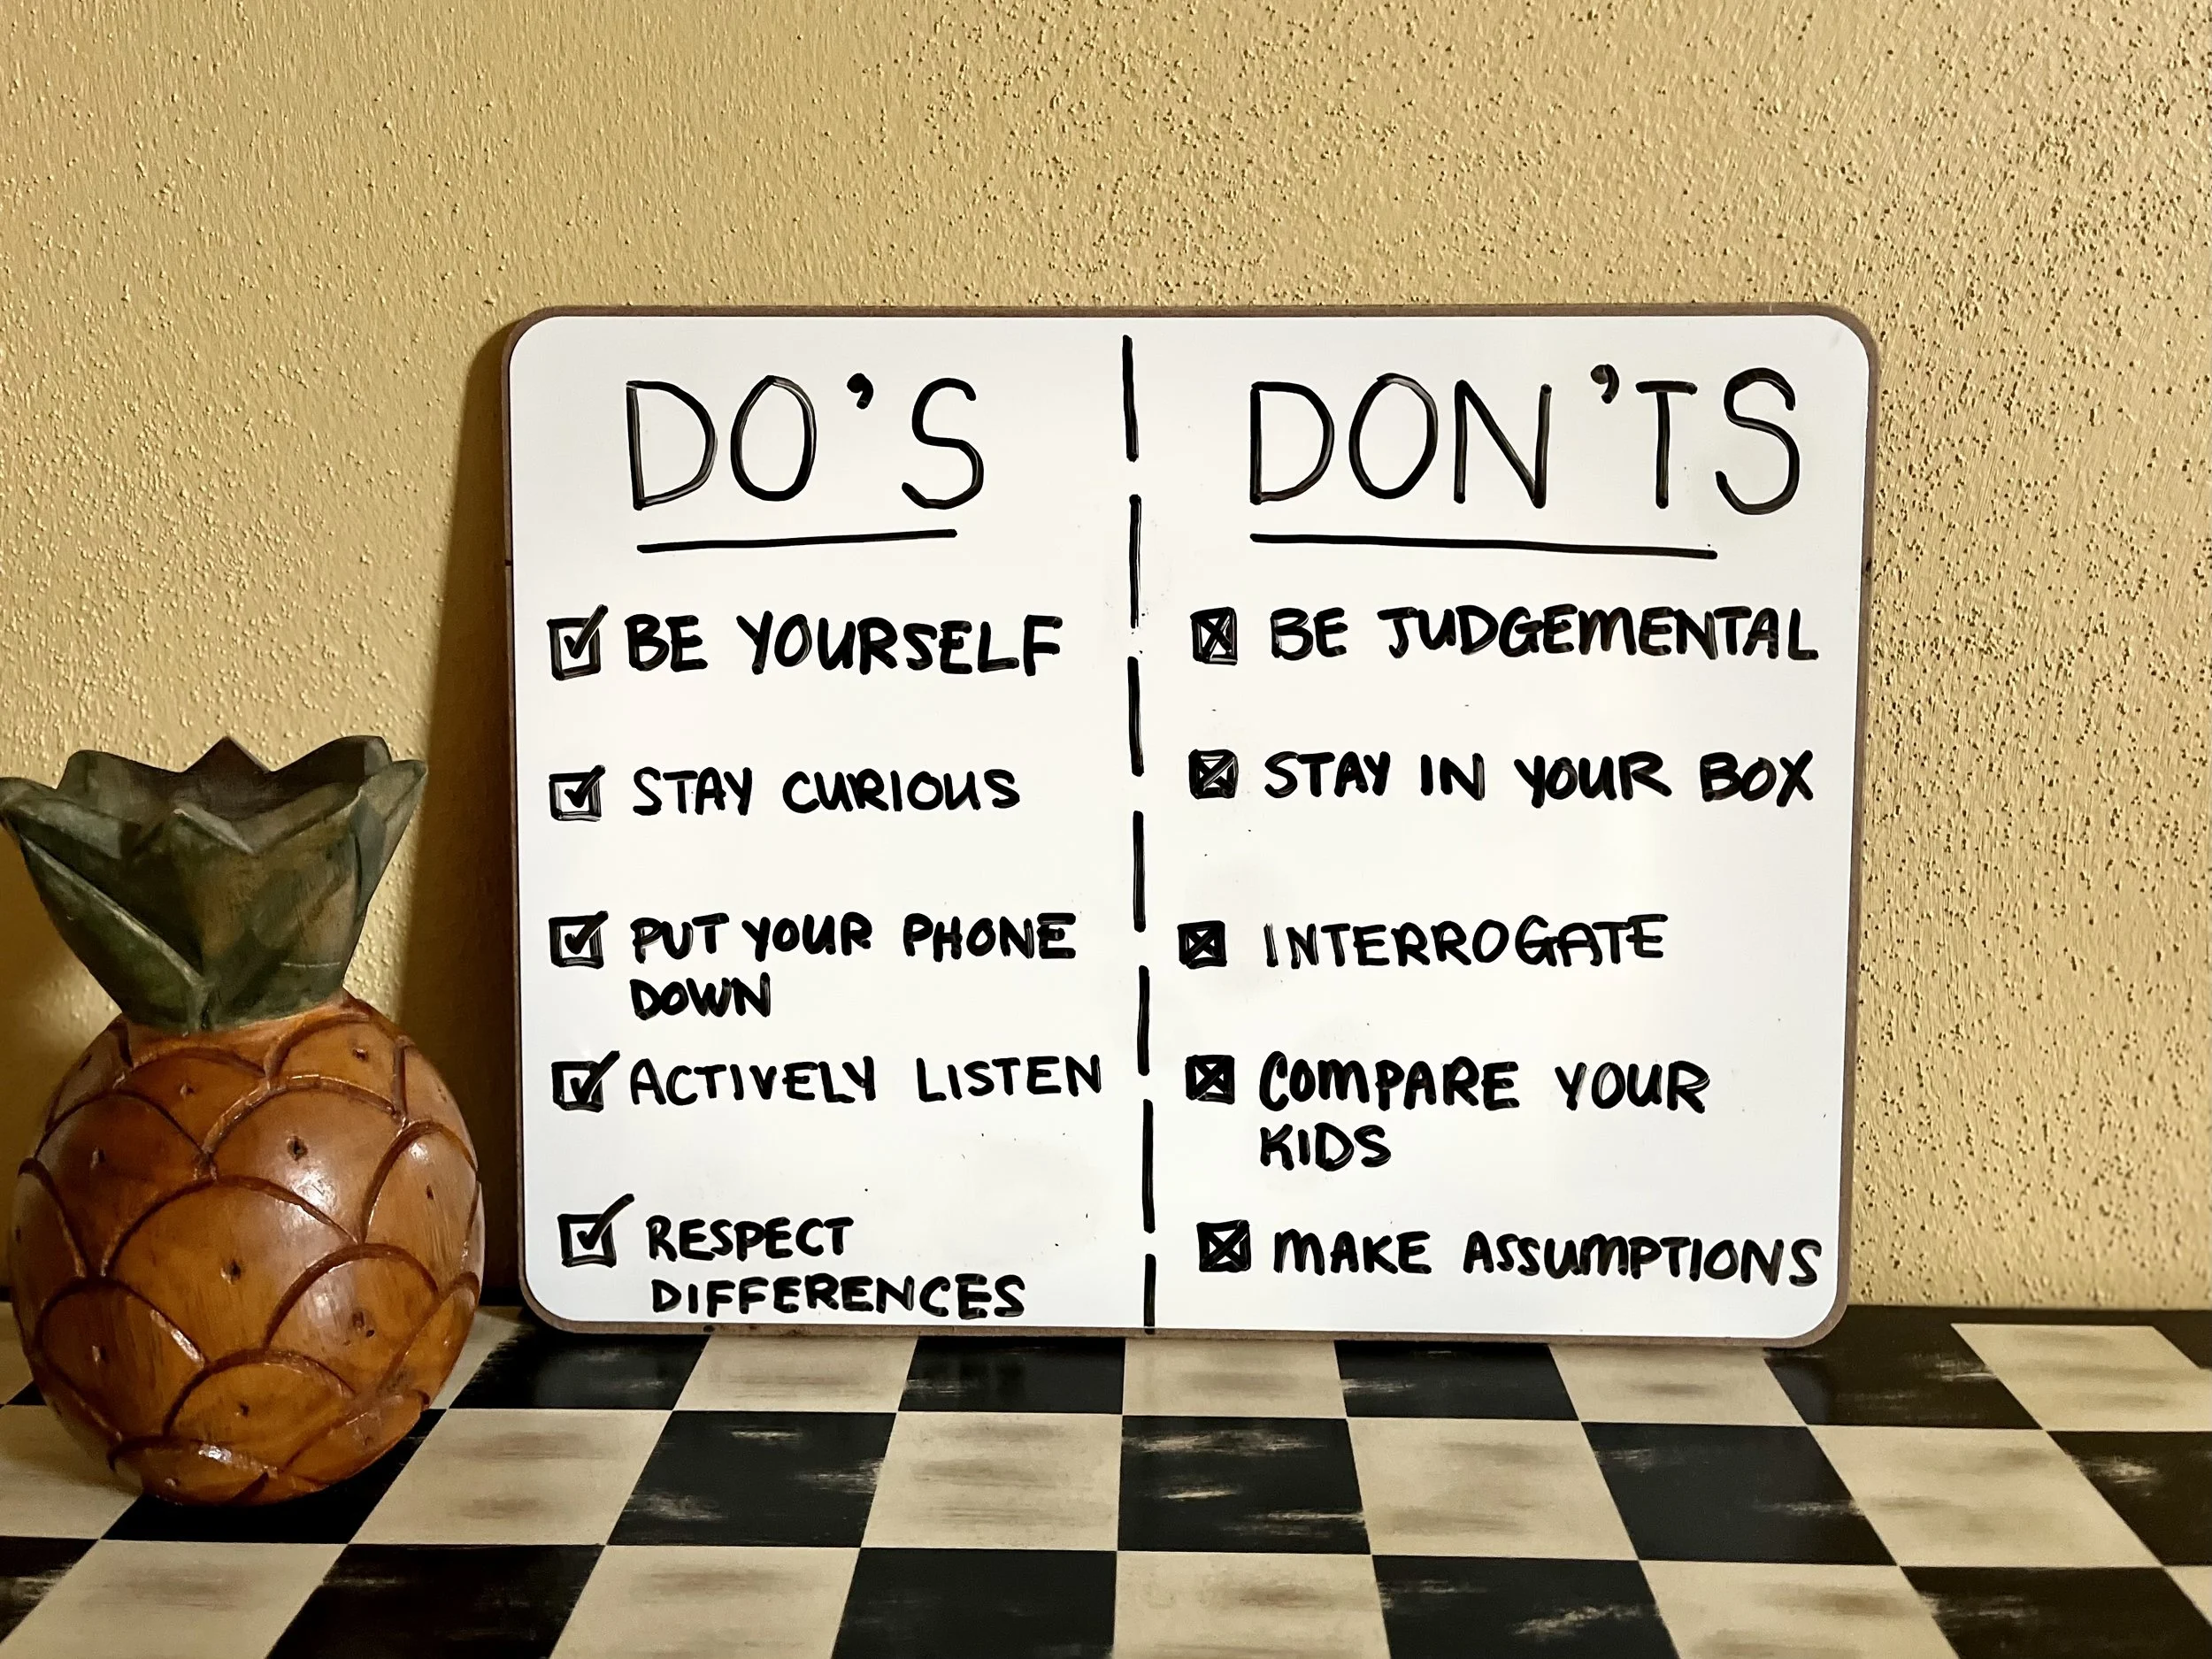 DO'S
BE YOURSELF
STAY CURIOUS
PUT YOUR PHONE
DOWN
ACTIVELY LISTEN
RESPECT
DIFFERENCES
DON'TS
BE JUDGEMENTAL
STAY IN YOUR BOX
INTERROGATE
COMPARE YOUR
KIDS
MAKE ASSUMPTIONS